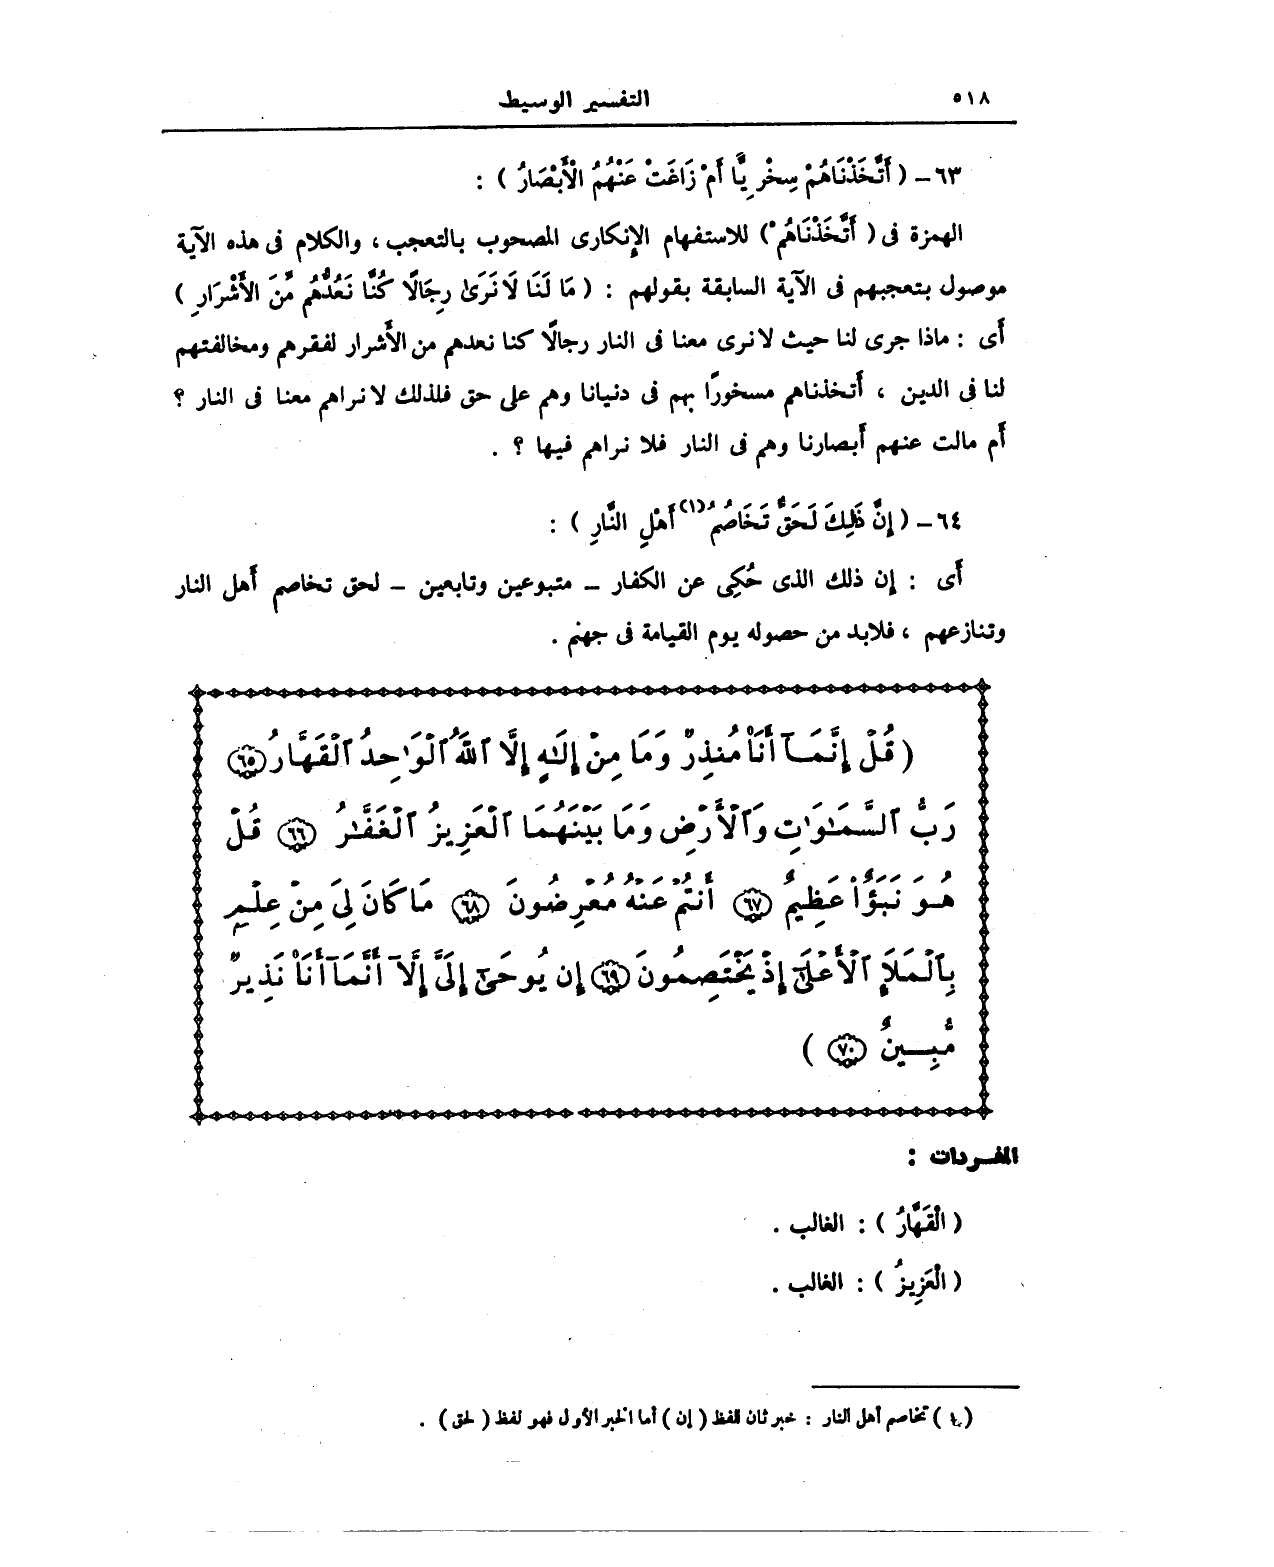 ٥١٨
التفسير الوسيط
٦٣ – ( أَتَّخَذْنَاهُمْ سِخْرِيًّا أَمْ زَاغَتْ عَنْهُمُ الْأَبْصَارُ ) :
الهمزة فى ( أَتَّخَذْنَاهُمْ ) للاستفهام الإنكارى المصحوب بالتعجب ، والكلام فى هذه الآية
موصول بتعجبهم فى الآية السابقة بقولهم : ( مَا لَنَا لَا نَرَىٰ رِجَالًا كُنَّا نَعُدُّهُم مِّنَ الأَشْرَارِ )
أَى : ماذا جرى لنا حيث لا نرى معنا فى النار رجالًا كنا نعدهم من الأَشرار لفقرهم ومخالفتهم
لنا فى الدين ، أَتخذناهم مسخورًا بهم فى دنيانا وهم على حق فلذلك لا نراهم معنا فى النار ؟
أَم مالت عنهم أَبصارنا وهم فى النار فلا نراهم فيها ؟ .
٦٤ – ( إِنَّ ذَٰلِكَ لَحَقٌّ تَخَاصُمُ (١) أَهْلِ النَّارِ ) :
أَى : إن ذلك الذى حُكِى عن الكفار – متبوعين وتابعين – لحق تخاصم أَهل النار
وتنازعهم ، فلابد من حصوله يوم القيامة فى جهنم .
( قُلْ إِنَّمَآ أَنَا۠ مُنذِرٌ وَمَا مِنْ إِلَٰهٍ إِلَّا ٱللَّهُ ٱلْوَٰحِدُ ٱلْقَهَّارُ ﴿٦٥﴾
رَبُّ ٱلسَّمَٰوَٰتِ وَٱلْأَرْضِ وَمَا بَيْنَهُمَا ٱلْعَزِيزُ ٱلْغَفَّٰرُ ﴿٦٦﴾ قُلْ
هُوَ نَبَؤٌا۟ عَظِيمٌ ﴿٦٧﴾ أَنتُمْ عَنْهُ مُعْرِضُونَ ﴿٦٨﴾ مَا كَانَ لِىَ مِنْ عِلْمٍ
بِٱلْمَلَإِ ٱلْأَعْلَىٰٓ إِذْ يَخْتَصِمُونَ ﴿٦٩﴾ إِن يُوحَىٰٓ إِلَىَّ إِلَّآ أَنَّمَآ أَنَا۠ نَذِيرٌ
مُّبِينٌ ﴿٧٠﴾ )
المفردات :
( الْقَهَّارُ ) : الغالب .
( الْعَزِيزُ ) : الغالب .
(١) تخاصم أهل النار : خبر ثان للفظ ( إن ) أما الخبر الأول فهو لفظ ( لحق ) .